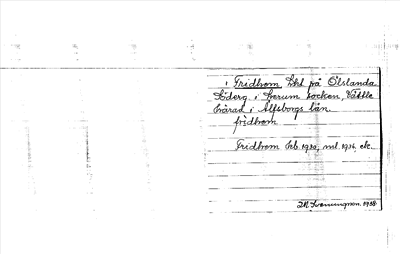 i Fridhem Lht på Ölslanda
Söderg. i Lerum socken, Vättle
härad i Älfsborgs län.
fridhem
Fridhem Jeb. 1930, ml. 1936, ek.
1938